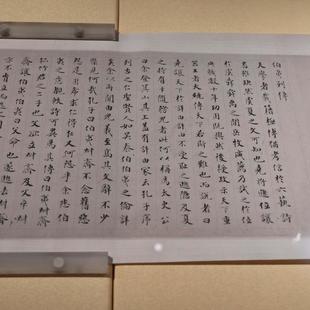 伯夷列傳
夫學者載籍極博猶考信於六藝詩
書雖缺然虞夏之文可知也堯將遜位讓
於虞舜舜禹之間岳牧咸薦乃試之於位
典職數十年功用既興然後授政示天下重
器王者大統傳天下若斯之難也而說者曰
堯讓天下於許由許由不受恥之逃隱及夏
之時有卞隨務光者此何以稱焉太史公
曰余登箕山其上蓋有許由冢云孔子序
列古之仁聖賢人如吳泰伯伯夷之倫詳
矣余以所聞由光義至高其文辭不少
概見何哉孔子曰伯夷叔齊不念舊惡
怨是用希求仁得仁又何怨乎余悲伯
夷之意睹軼詩可異焉其傳曰伯夷叔齊
孤竹君之二子也父欲立叔齊及父卒叔
齊讓伯夷伯夷曰父命也遂逃去叔齊
亦不肯立而逃之